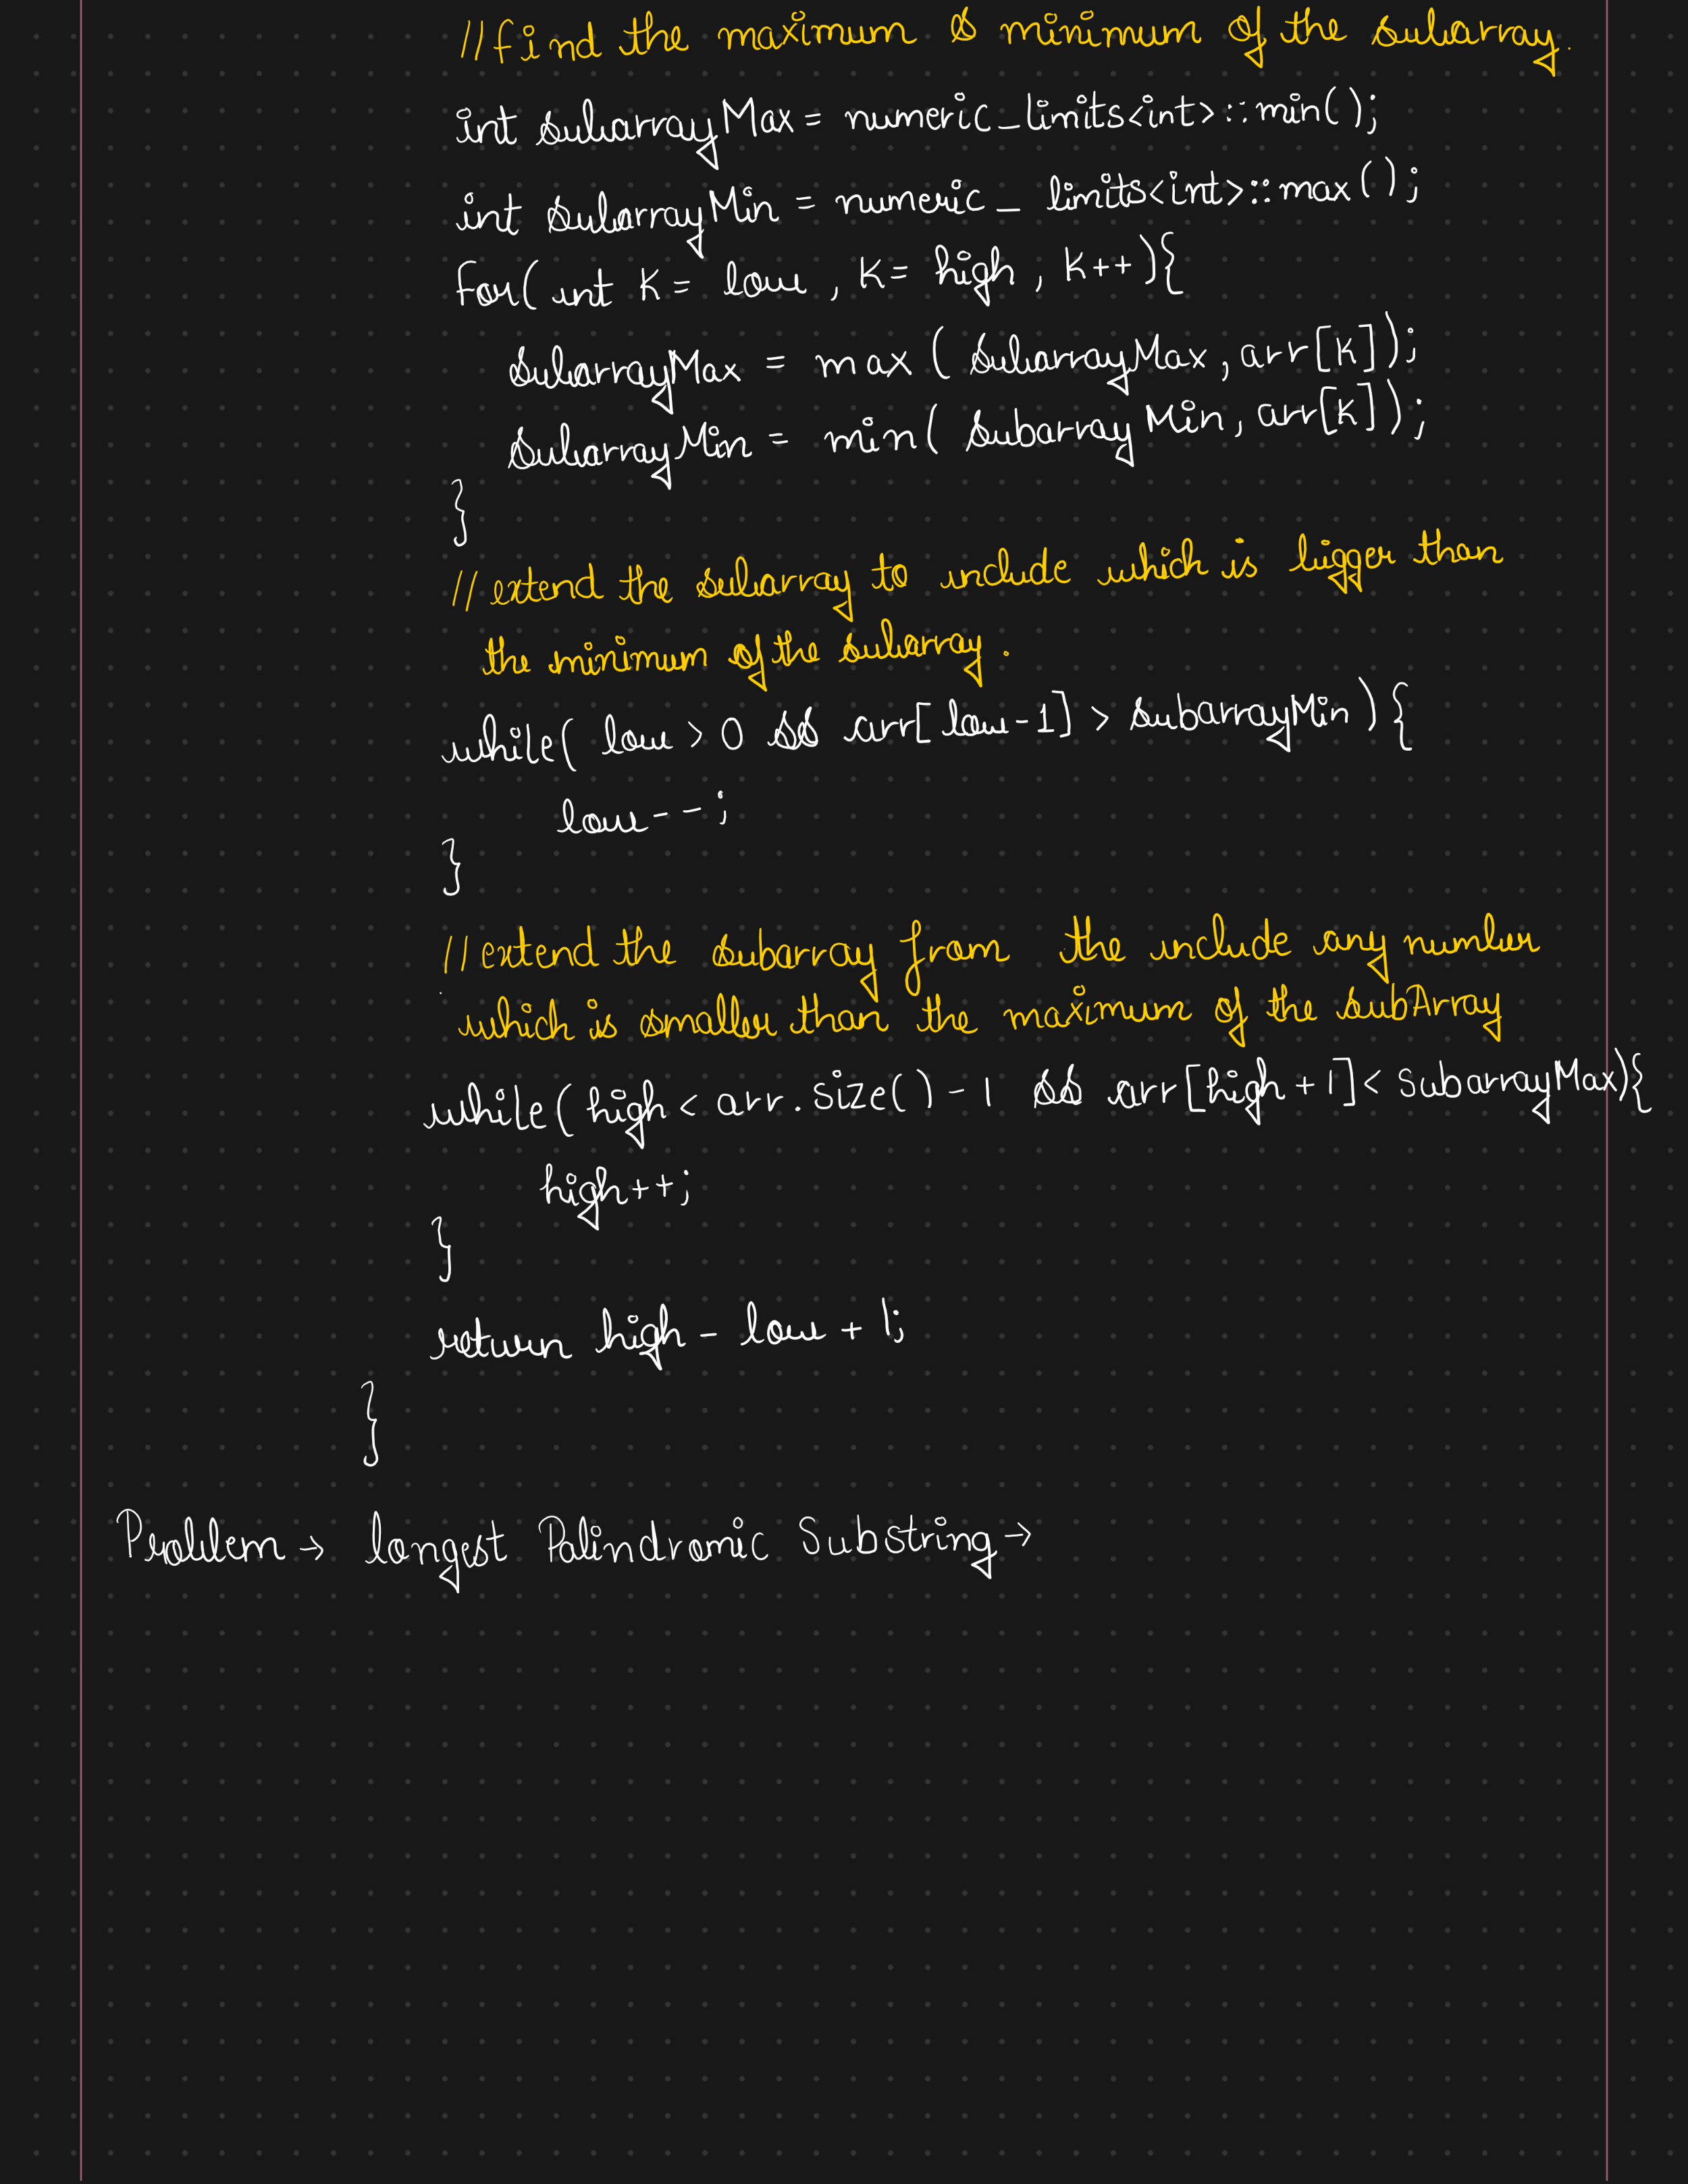 //find the maximum & minimum of the subarray.
int subarrayMax = numeric_limits<int>::min();
int subarrayMin = numeric_ limits<int>::max();
for( int K = low , K= high , K++){
subarrayMax = max ( subarrayMax , arr[K]);
subarrayMin = min( subarrayMin, arr[K]);
}
// extend the subarray to include which is bigger than
the minimum of the subarray .
while( low > 0 && arr[ low-1] > subarrayMin ) {
low--;
}
//extend the subarray from the include any number
which is smaller than the maximum of the subArray
while( high < arr.size() - 1 && arr [high + 1] < SubarrayMax){
high++;
}
return high - low + 1;
}
Problem → longest Palindromic Substring →